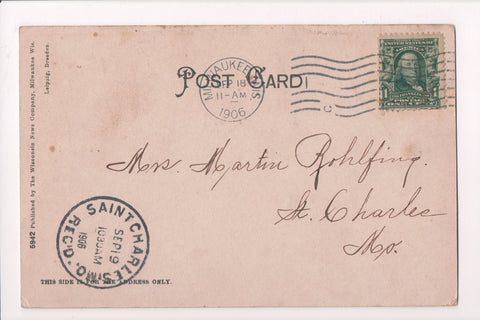 5942 Published by The Wisconsin News Company, Milwaukee Wis.
Leipzig, Dresden.
POST CARD
MILWAUKEE, WIS.
SEP 18
11-AM
1906
C
Mrs. Martin Rohlfing.
St. Charles
Mo.
SAINT CHARLES, MO.
SEP 19
1030AM
1906
REC'D.
THIS SIDE IS FOR THE ADDRESS ONLY.